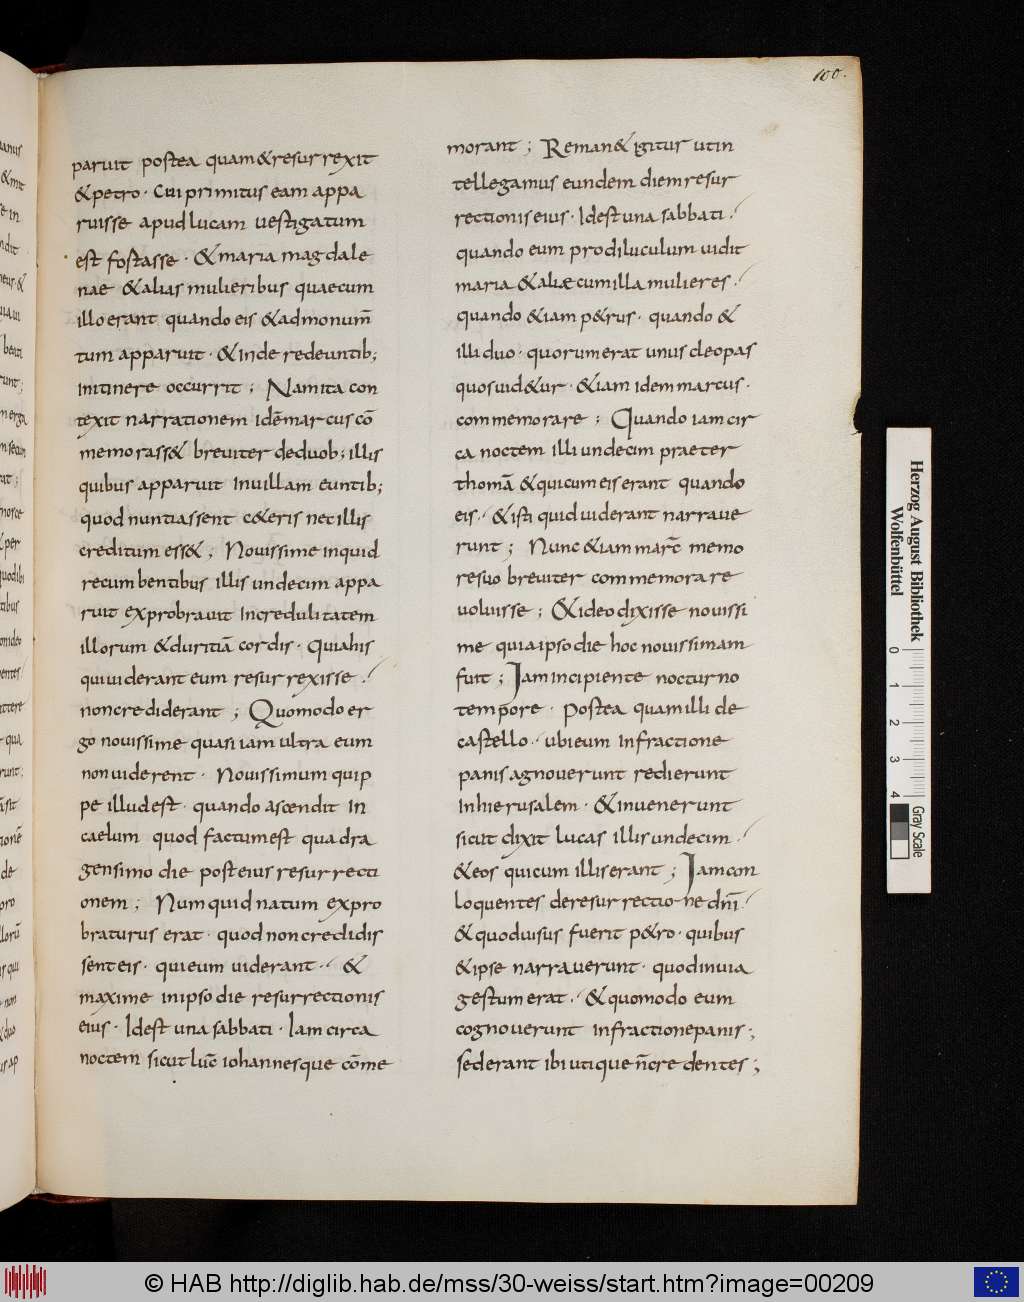 100.
paruit postea quam & resurrexit
& petro · Cui primitus eam appa
ruisse apud lucam uestigatum
est fostasse · & maria magdale
nae & alias mulieribus quaecum
illo erant quando eis & admonum̄
tum apparuit · & inde redeuntib;
initinere occurrit ; Nam ita con
texit narrationem idē marcus cō
memorass& breuiter deduob; illis
quibus apparuit inuillam euntib;
quod nuntiassent c&eris nec illis
creditum ess& ; Nouissime inquid
recumbentibus illis undecim appa
ruit exprobrauit incredulitatem
illorum & duritiā cordis · Quia his
qui uiderant eum resurrexisse ·/
non crediderant ; Quomodo er
go nouissime quasi iam ultra eum
non uiderent · Nouissimum quip
pe illud est · quando ascendit in
caelum quod factum est quadra
gensimo die post eius resurrecti
onem ; Numquid natum expro
braturus erat · quod non credidis
sent eis · qui eum uiderant ·/ &
maxime in ipso die resurrectionis
eius · Id est una sabbati · Iam circa
noctem sicut luc̄ iohannesque cōme
morant ; Reman& igitur ut in
tellegamus eundem diem resur
rectionis eius · Id est una sabbati ·/
quando eum prodiluculum uidit
maria & aliæ cum illa mulieres ·/
quando &iam p&rus · quando &
illi duo · quorum erat unus cleopas
quos uid&ur · &iam idem marcus ·
commemorare ; Quando iam cir
ca noctem illi undecim praeter
thomā & qui cum eis erant quando
eis ·/ & isti quid uiderant narraue
runt ; Nunc &iam marc̄ memo
resuo breuiter commemorare
uoluisse ; & ideo dixisse nouissi
me quia ipso die hoc nouissimam
fuit ; Iam incipiente nocturno
tempore · Postea quam illi de
castello ·/ ubi eum infractione
panis agnouerunt redierunt
in hierusalem · & inuenerunt
sicut dixit lucas illis undecim ·/
& eos qui cum illis erant ; Iam con
loquentes de resurrectione dn̄i ·/
& quod uisus fuerit p&ro · quibus
& ipse narrauerunt · quod in uia
gestum erat ·/ & quomodo eum
cognouerunt infractione panis ·;
sederant ibi utique n̄ credentes ;
Herzog August Bibliothek
Wolfenbüttel
0 1 2 3 4
Gray Scale
© HAB http://diglib.hab.de/mss/30-weiss/start.htm?image=00209